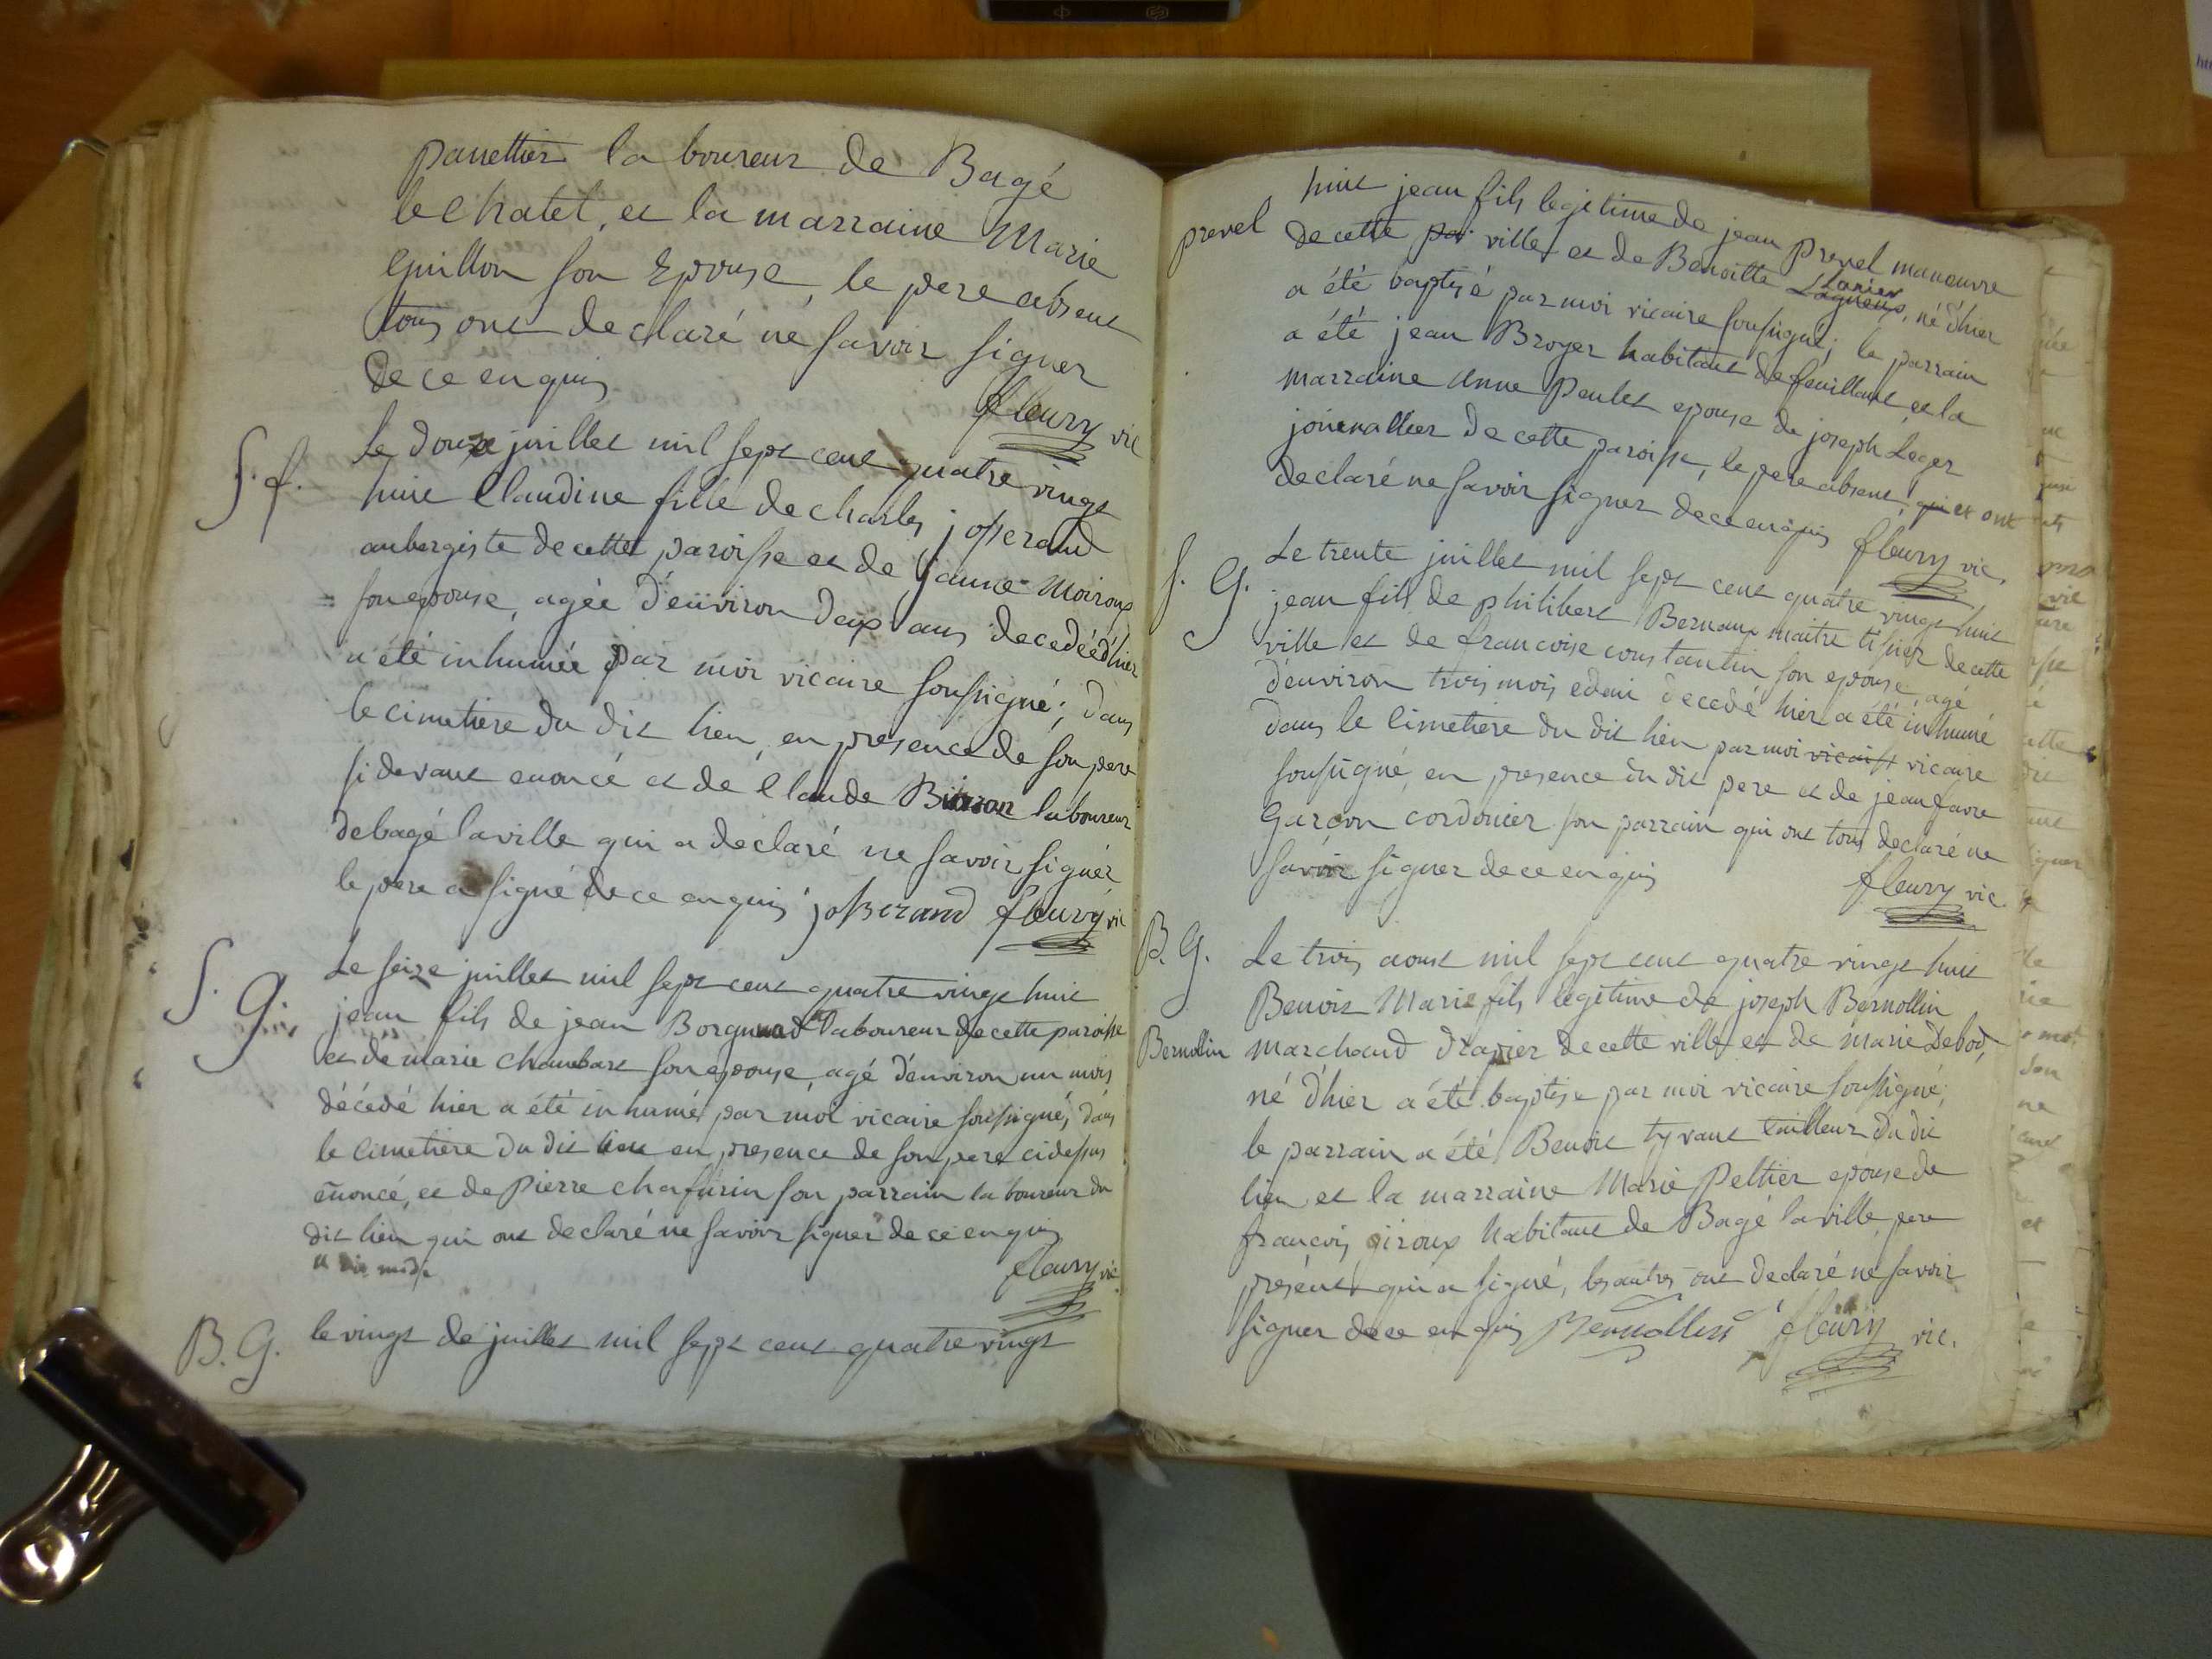 panettier la boureur de Bagé
le chatel, et la marraine Marie
Guillon son Epouse, le pere absent
tous ont declaré ne savoir signer
de ce enquis
fleury vic
S. f. Le douze juillet mil sept cent quatre vingt
huit Claudine fille de charles josserand
aubergiste de cette paroisse et de jeanne Moiroux
son epouse, agée d'environ deux ans decedée d'hier
a été inhumée par moi vicaire soussigné; dans
le cimetiere du dit lieu, en presence de son pere
si devant enoncé et de Claude laboureur
de bagé la ville qui a declaré ne savoir signer
le pere a signé de ce enquis josserand fleury vic
S. G. Le seize juillet mil sept cent quatre vingt huit
jean fils de jean laboureur de cette paroisse
et de marie chambart son epouse, agé d'environ un mois
décédé hier a été inhumé par moi vicaire soussigné, dans
le cimetiere du dit lieu en presence de son pere cidessus
enoncé, et de Pierre chafurin son parrain la boureur du
dit lieu qui ont declaré ne savoir signer de ce enquis
fleury vic
B. G. le vingt de juillet mil sept cent quatre vingt
huit jean fils legitime de jean Prevel manœuvre
prevel
de cette par ville et de Benoitte Lanier, né d'hier
a été baptisé par moi vicaire soussigné; le parrain
a été jean Broyer habitant de feuillant et la
marraine anne Peulet epouse de joseph Leger
journallier de cette paroisse, le pere absent, qui et ont
declaré ne savoir signer de ce enquis fleury vic.
S. G. Le trente juillet mil sept cent quatre vingt huit
jean fils de philibert Bernaux maitre tisier de cette
ville et de francoise constantin son epouse, agé
d'environ trois mois edemi decedé hier a été inhumé
dans le Cimetiere du dit lieu par moi vicaire
soussigné, en presence du dit pere et de jean favre
Garçon cordonier son parrain qui ont tous declaré ne
savoir signer de ce enquis fleury vic.
B. G. Le trois aoust mil sept cent quatre vingt huit
Benoit Marie fils legitime de joseph Bernollin
Bernollin marchand drapier de cette ville et de marie Debod,
né d'hier a été baptise par moi vicaire soussigné;
le parrain a été Benoit tyrant tailleur du dit
lieu et la marraine Marie Peltier epouse de
francois giroux habitant de Bagé la ville, pere
présent qui a signé, les autres ont declaré ne savoir
signer de ce enquis Bernollin fleury vic.